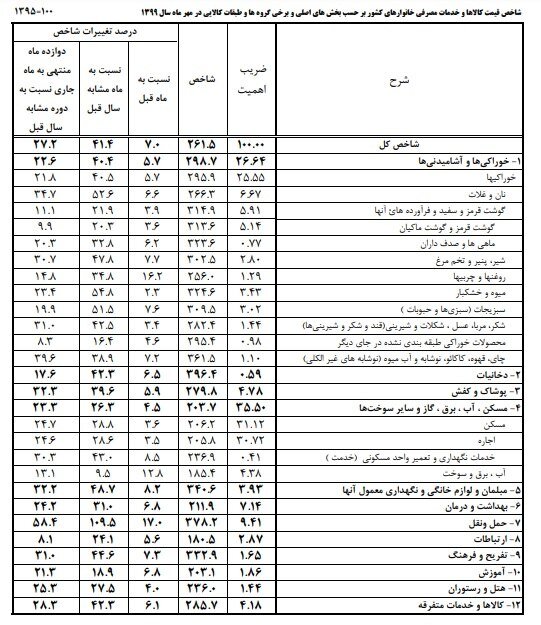 شاخص قیمت کالاها و خدمات مصرفی خانوارهای کشور بر حسب بخش های اصلی و برخی گروه ها و طبقات کالایی در مهر ماه سال ۱۳۹۹ ۱۰۰=۱۳۹۵
شرح ضریب اهمیت شاخص درصد تغییرات شاخص
نسبت به ماه قبل نسبت به ماه مشابه سال قبل دوازده ماه منتهی به ماه جاری نسبت به دوره مشابه سال قبل
شاخص کل ۱۰۰.۰۰ ۲۶۱.۵ ۷.۰ ۴۱.۴ ۲۷.۲
۱- خوراکی‌ها و آشامیدنی‌ها ۲۶.۶۴ ۲۹۸.۷ ۵.۷ ۴۰.۴ ۲۲.۶
خوراکیها ۲۵.۵۵ ۲۹۵.۹ ۵.۷ ۴۰.۵ ۲۱.۸
نان و غلات ۶.۶۷ ۲۶۶.۳ ۶.۶ ۵۲.۶ ۳۴.۷
گوشت قرمز و سفید و فرآورده های آنها ۵.۹۱ ۳۱۴.۹ ۳.۹ ۲۱.۹ ۱۱.۱
گوشت قرمز و گوشت ماکیان ۵.۱۴ ۳۱۳.۶ ۳.۶ ۲۰.۳ ۹.۹
ماهی ها و صدف داران ۰.۷۷ ۳۲۳.۶ ۶.۲ ۳۲.۸ ۲۰.۳
شیر، پنیر و تخم مرغ ۲.۸۰ ۳۰۲.۵ ۷.۷ ۴۷.۸ ۳۰.۷
روغنها و چربیها ۱.۲۹ ۲۵۶.۰ ۱۶.۲ ۳۴.۸ ۱۴.۸
میوه و خشکبار ۳.۴۳ ۳۲۴.۶ ۲.۳ ۵۴.۸ ۲۳.۴
سبزیجات (سبزی‌ها و حبوبات ) ۳.۰۲ ۳۰۹.۵ ۷.۶ ۵۱.۵ ۱۹.۹
شکر، مربا، عسل ، شکلات و شیرینی(قند و شکر و شیرینی‌ها) ۱.۴۴ ۲۸۲.۴ ۳.۴ ۴۲.۵ ۳۱.۰
محصولات خوراکی طبقه بندی نشده در جای دیگر ۰.۹۸ ۲۹۵.۴ ۴.۶ ۱۶.۴ ۸.۳
چای، قهوه، کاکائو، نوشابه و آب میوه (نوشابه های غیر الکلی) ۱.۱۰ ۳۶۱.۵ ۷.۲ ۳۸.۹ ۳۹.۶
۲- دخانیات ۰.۵۹ ۳۹۶.۴ ۶.۵ ۴۲.۳ ۱۷.۶
۳- پوشاک و کفش ۴.۷۸ ۲۷۹.۸ ۵.۹ ۳۹.۶ ۳۲.۳
۴- مسکن ، آب ، برق ، گاز و سایر سوخت‌ها ۳۵.۵۰ ۲۰۳.۷ ۴.۵ ۲۶.۳ ۲۳.۳
مسکن ۳۱.۱۲ ۲۰۶.۲ ۳.۶ ۲۸.۸ ۲۴.۷
اجاره ۳۰.۷۲ ۲۰۵.۸ ۳.۵ ۲۸.۶ ۲۴.۶
خدمات نگهداری و تعمیر واحد مسکونی (خدمت ) ۰.۴۱ ۲۳۶.۹ ۸.۵ ۴۳.۰ ۳۰.۳
آب ، برق و سوخت ۴.۳۸ ۱۸۵.۴ ۱۲.۸ ۹.۵ ۱۳.۱
۵- مبلمان و لوازم خانگی و نگهداری معمول آنها ۳.۹۳ ۳۴۰.۶ ۸.۲ ۴۸.۷ ۳۲.۲
۶- بهداشت و درمان ۷.۱۴ ۲۱۱.۹ ۶.۸ ۳۱.۰ ۲۴.۲
۷- حمل ونقل ۹.۴۱ ۳۷۸.۲ ۱۷.۰ ۱۰۹.۵ ۵۸.۴
۸- ارتباطات ۲.۸۷ ۱۸۰.۵ ۵.۶ ۲۴.۱ ۸.۱
۹- تفریح و فرهنگ ۱.۶۵ ۳۳۲.۹ ۷.۳ ۴۴.۶ ۳۱.۰
۱۰- آموزش ۱.۸۶ ۲۰۳.۱ ۶.۸ ۱۸.۹ ۲۱.۳
۱۱- هتل و رستوران ۱.۴۴ ۲۳۶.۰ ۴.۰ ۲۷.۵ ۲۵.۳
۱۲- کالاها و خدمات متفرقه ۴.۱۸ ۲۸۵.۷ ۶.۱ ۴۲.۳ ۲۸.۳